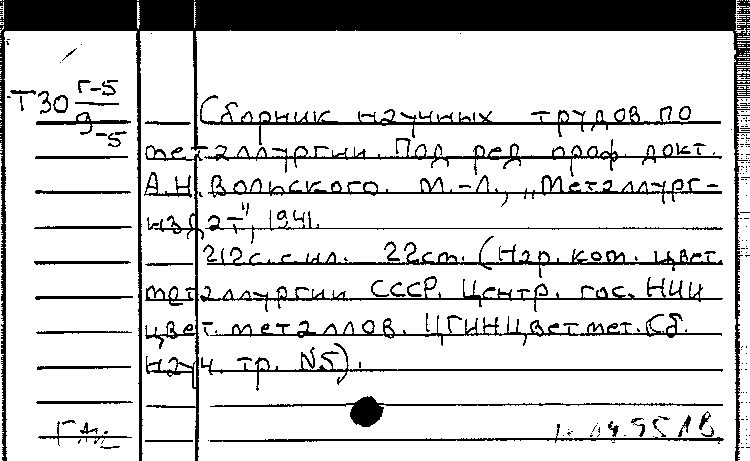 Т30 Г-5
9-5
Сборник научных трудов по
металлургии. Под ред проф докт.
А.Н. Вольского. М.-Л., „Металлург-
издат", 1941.
212с. с ил. 22см. (Нар. ком. цвет.
металлургии СССР. Центр. гос. НИИ
цвет. металлов. ЦГИНЦветмет. Сб.
науч. тр. №5).